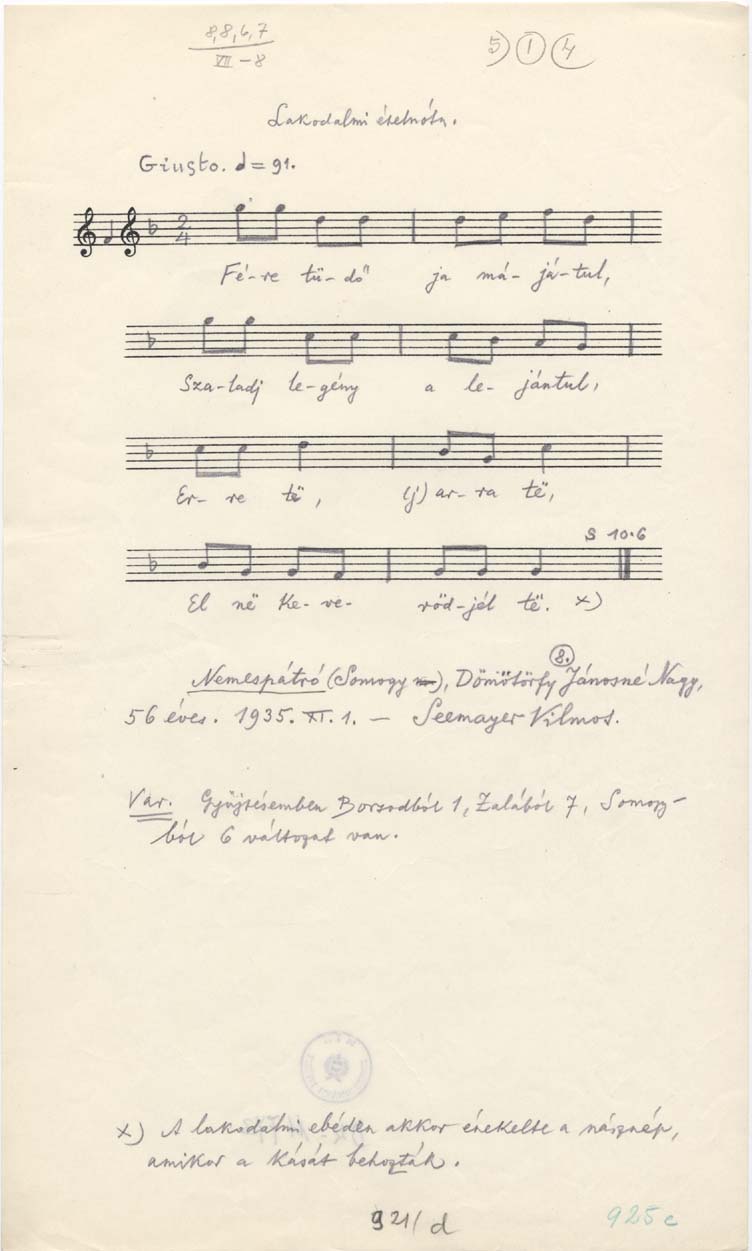 8,8,6,7
VII-8
5) 1 4
Lakodalmi ételnóta.
Giusto. d = 91.
2
4
Fé-re tü-dő ja má-já-tul,
Sza-ladj le-gény a le-jántul,
Er-re të, (j)ar-ra të,
S 10.6
El në ke-ve-rőd-jél të. x)
8.
Nemespátró (Somogy m), Dömötörfy Jánosné Nagy,
56 éves. 1935. XI. 1. - Seemayer Vilmos.
Var. Gyüjtésemben Borsodból 1, Zalából 7, Somogy-
ból 6 változat van.
x) A lakodalmi ebéden akkor énekelte a násznép,
amikor a kását behozták.
921/d
925c